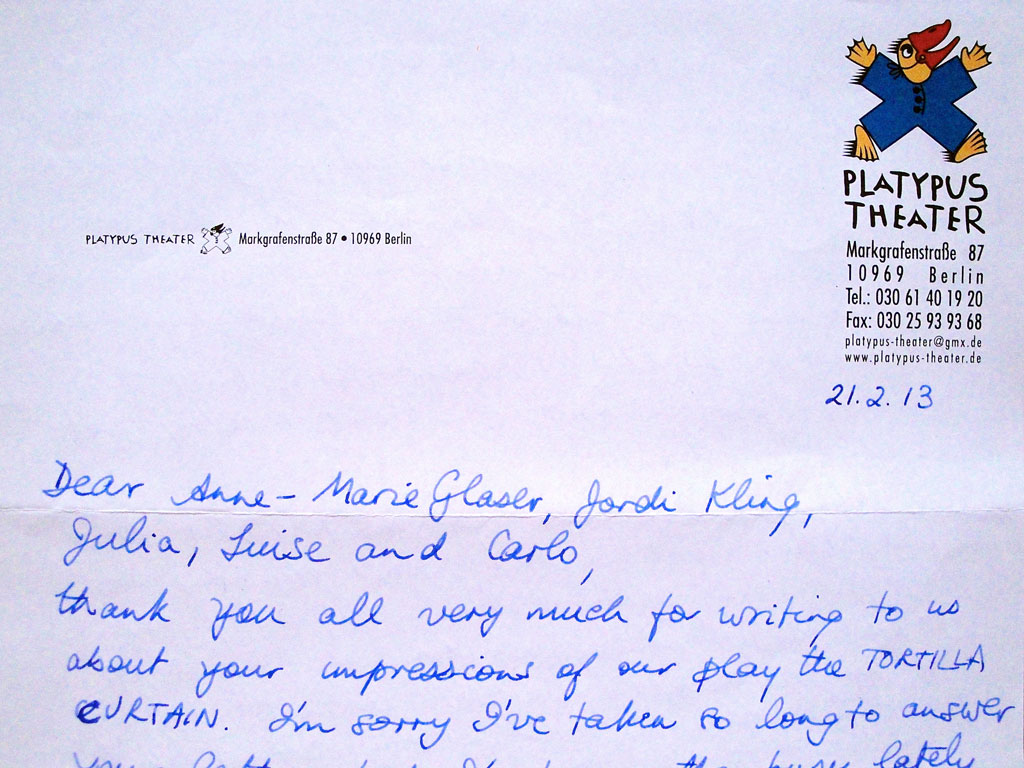 PLATYPUS
THEATER
Markgrafenstraße 87
10969 Berlin
Tel.: 030 61 40 19 20
Fax: 030 25 93 93 68
platypus-theater@gmx.de
www.platypus-theater.de
PLATYPUS THEATER Markgrafenstraße 87 • 10969 Berlin
21.2.13
Dear Anne-Marie Glaser, Jordi Kling,
Julia, Luise and Carlo,
thank you all very much for writing to us
about your impressions of our play the TORTILLA
CURTAIN. I'm sorry I've taken so long to answer
lately